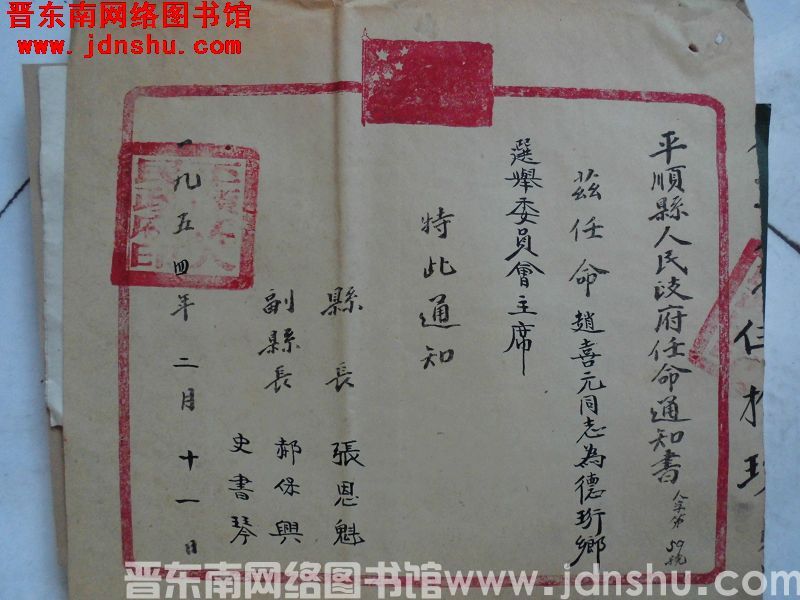 晋东南网络图书馆
www.jdnshu.com
平順縣人民政府任命通知書
人字第59號
茲任命趙喜元同志為德珩鄉
選舉委員會主席
特此通知
縣長 張恩魁
副縣長 郝保興
史書琴
一九五四年二月十一日
晋东南网络图书馆www.jdnshu.com